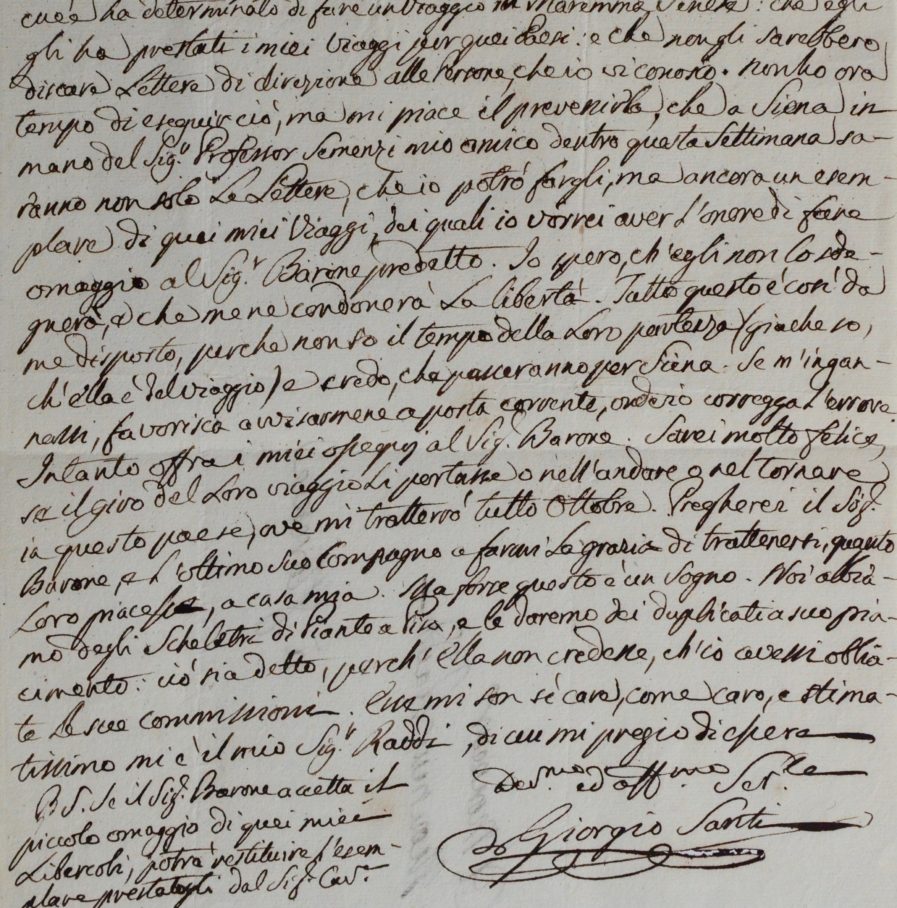 cui è ha determinato di fare un viaggio in Maremma Senese: che egli
gli ha prestati i miei Viaggi per quei Paesi: e che non gli sarebbero
discare Lettere di direzione alle Persone, che io vi conosco. Non ho ora
tempo di eseguir ciò, ma mi piace il prevenirla, che a Siena in
mano del Sig.r Professor Semenzi mio amico dentro questa Settimana sa-
ranno non solo Le Lettere, che io potrò fargli, ma ancora un esem-
plare di quei miei Viaggi, dei quali io vorrei aver l'onore di fare
omaggio al Sig.r Barone predetto. Io spero, ch'egli non lo sde-
gnerà, e che me ne condonerà La libertà. Tutto questo è così da
me disposto, perche non so il tempo della Loro partenza (giache so,
ch'ella è del viaggio) e credo, che passeranno per Siena. Se m'ingan-
nassi, favorisca avvisarmene a posta corrente, ond'io corregga L'errore.
Intanto offra i miei ossequj al Sig.r Barone. Sarei molto felice,
se il giro del Loro viaggio Li portasse o nell'andare o nel tornare
in questo paese, ove mi tratterrò tutto Ottobre. Pregherei il Sig.r
Barone, e L'ottimo suo Compagno a farmi La grazia di trattenersi, quanto
Loro piacesse, a casa mia. Ma forse questo è un Sogno. Noi abbia-
mo degli Scheletri di Piante a Pisa, e le daremo dei duplicati a suo pia-
cimento: ciò sia detto, perch'Ella non credesse, ch'io avessi oblia-
te Le sue commissioni. Esse mi son sì care, come caro, e stima-
tissimo mi è il mio Sig.r Raddi, di cui mi pregio di essere
Dev.mo ed aff.mo Ser.re
Giorgio Santi
P.S. Se il Sig.r Barone accetta il
piccolo omaggio di quei miei
Libercoli, potrà restituire l'esem-
plare prestatogli dal Sig.r Cav.r